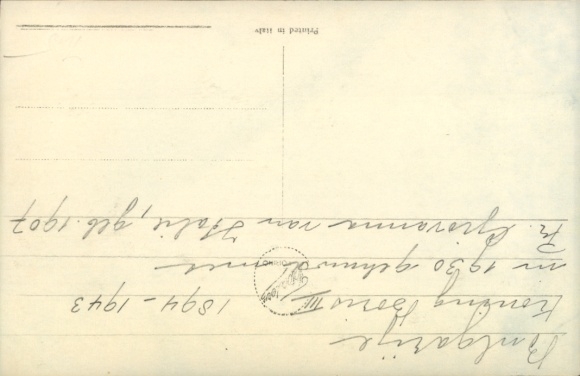 Bulgarije
Koning Boris III 1894-1943
in 1930 gehuwd met
Pr. Giovanna van Italie, geb. 1907
Printed in Italy